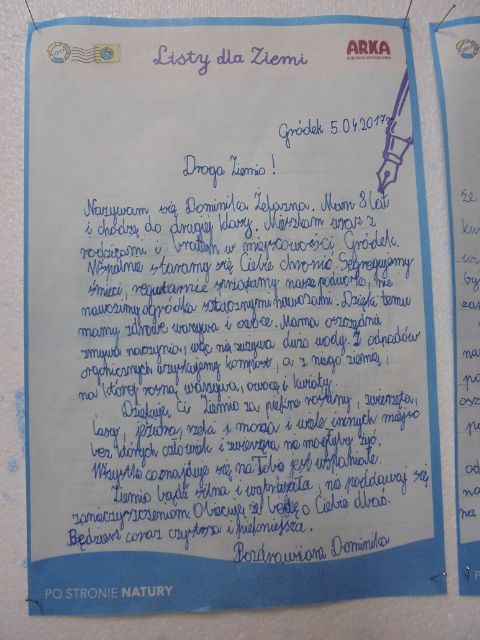 Listy dla Ziemi
ARKA
Gródek 5.04.2017r
Droga Ziemio!
Nazywam się Dominika Żelazna. Mam 8 lat
i chodzę do drugiej klasy. Mieszkam wraz z
rodzicami i bratem w miejscowości Gródek.
Wspólnie staramy się Ciebie chronić. Segregujemy
śmieci, regularnie sprzątamy nasze podwórko, nie
nawozimy ogródka sztucznymi nawozami. Dzięki temu
mamy zdrowe warzywa i owoce. Mama oszczędnie
zmywa naczynia, więc nie zużywa dużo wody. Z odpadów
organicznych uzyskujemy kompost, a z niego ziemię,
na której rosną warzywa, owoce i kwiaty.
Dziękuję Ci Ziemio za piękne rośliny, zwierzęta,
lasy, jeziora, rzeki i morza i wiele innych miejsc
bez których człowiek i zwierzęta nie mogłyby żyć.
Wszystko co znajduje się na Tobie jest wspaniałe.
Ziemio bądź silna i wytrwała, nie poddawaj się
zanieczyszczeniom. Obiecuję że będę o Ciebie dbać.
Będziesz coraz czystsza i piękniejsza.
Pozdrawiam Dominika
PO STRONIE NATURY